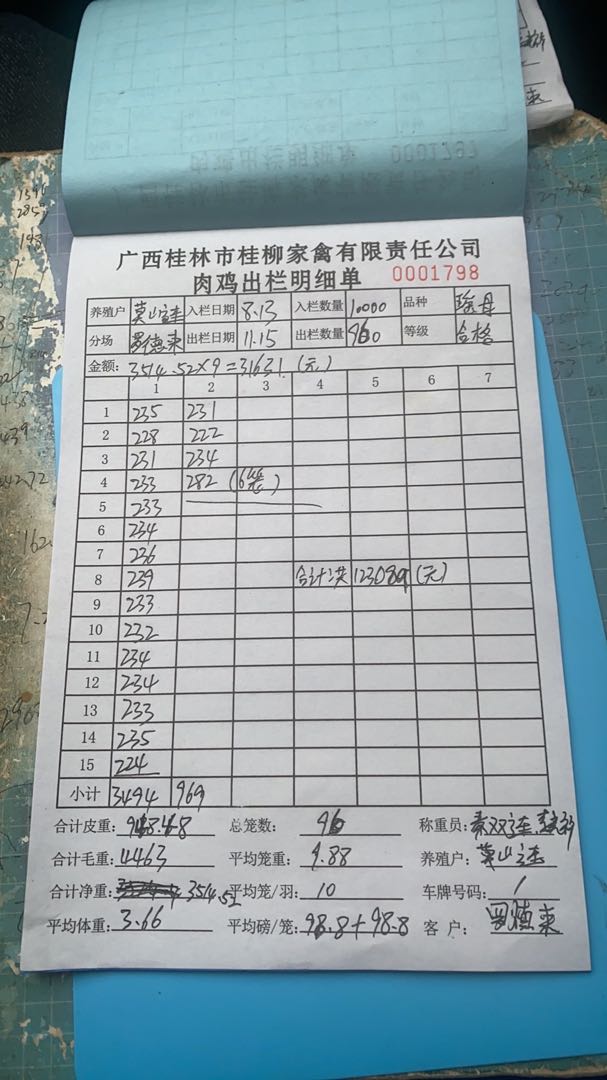 广西桂林市桂柳家禽有限责任公司
肉鸡出栏明细单 0001798
养殖户 莫山连 入栏日期 8.13 入栏数量 10000 品种
分场 罗德来 出栏日期 11.15 出栏数量 960 等级 合格
金额: 3514.52×9=31631(元)
1 2 3 4 5 6 7
1 235 231
2 228 222
3 231 234
4 233 282 (6笼)
5 233
6 234
7 236
8 239 合计洪 123089 (元)
9 233
10 232
11 234
12 234
13 233
14 235
15 224
小计 3494 969
合计皮重: 948.48 总笼数: 96 称重员:
合计毛重: 4463 平均笼重: 9.88 养殖户: 莫山连
合计净重: 3514.52 平均笼/羽: 10 车牌号码: /
平均体重: 3.66 平均磅/笼: 98.8+98.8 客户: 罗德来